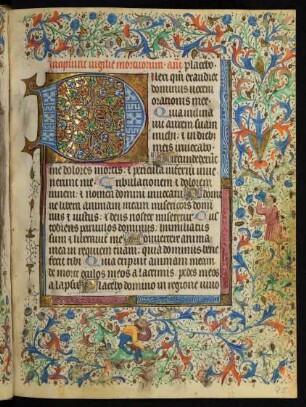 Incipiunt vigilie mortuorum. añ. placebo
ilexi qm exaudiet
dominus vocem
orationis mee
Quia inclina
vit aurem suam
michi : et in dieb
meis invocabo
Circundederūt
me dolores mortis : et pericula inferni inve
nerunt me Tribulationem et dolorem
inveni : et nomen domini invocavi
ne libera animam meam misericors domi
nus et iustus : et deus noster miseretur Cus
todiens parvulos dominus : humiliatus
sum et liberavit me Convertere anima
mea in requiem tuam : quia dominus bene
fecit tibi Quia eripuit animam meam
de morte oculos meos a lacrimis pedes meos
a lapsu Placebo domino in regione vivo